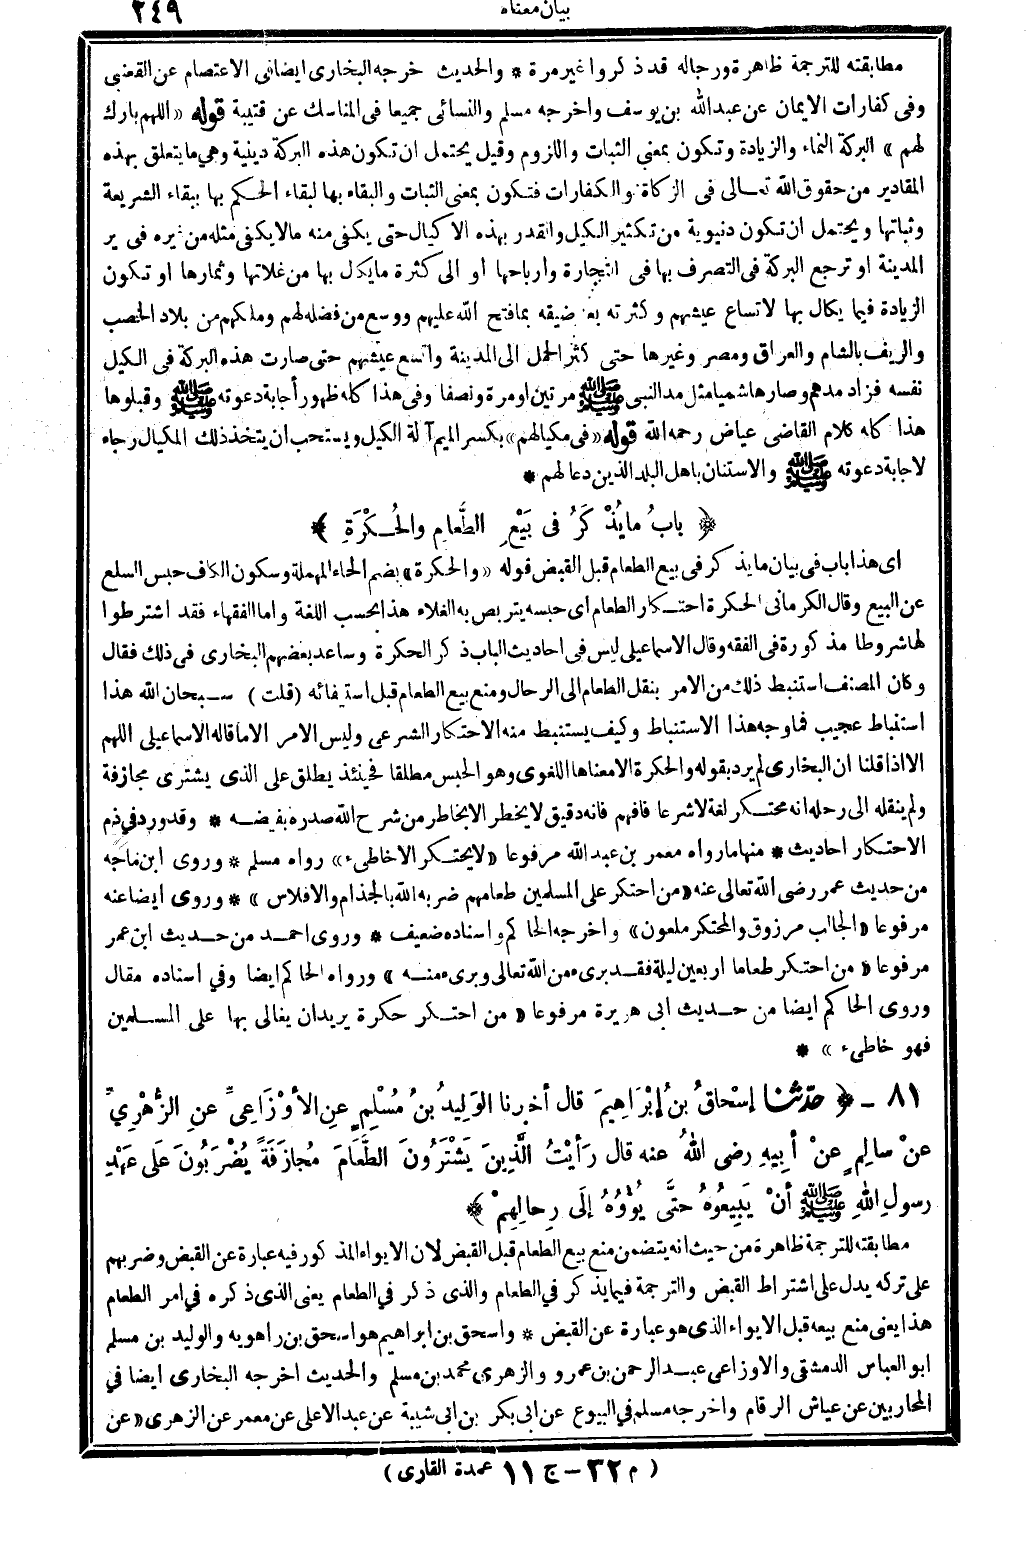 بيان معناه
٢٤٩
مطابقته للترجمة ظاهرة ورجاله قد ذكروا غير مرة * والحديث خرجه البخارى ايضا فى الاعتصام عن القعنبى
وفى كفارات الايمان عن عبدالله بن يوسف واخرجه مسلم والنسائى جميعا فى المناسك عن قتيبة قوله «اللهم بارك
لهم» البركة النماء والزيادة وتكون بمعنى الثبات واللزوم وقيل يحتمل ان تكون هذه البركة دينية وهى ما يتعلق بهذه
المقادير من حقوق الله تعالى فى الزكاة والكفارات فتكون بمعنى الثبات والبقاء بها لبقاء الحكم بها ببقاء الشريعة
وثباتها ويحتمل ان تكون دنيوية من تكثير الكيل والقدر بهذه الاكيال حتى يكفى منه مالا يكفى مثله من غيره فى غير
المدينة او ترجع البركة فى التصرف بها فى التجارة وارباحها أو الى كثرة ما يكال بها من غلاتها وثمارها او تكون
الزيادة فيما يكال بها لاتساع عيشهم وكثرته بعد ضيقه بما فتح الله عليهم ووسع من فضله لهم وملكهم من بلاد الخصب
والريف بالشام والعراق ومصر وغيرها حتى كثر الحمل الى المدينة واتسع عيشهم حتى صارت هذه البركة فى الكيل
نفسه فزاد مدهم وصار هاشميا مثل مد النبى ﷺ مرتين او مرة ونصفا وفى هذا كله ظهور أجابة دعوته ﷺ وقبلوها
هذا كله كلام القاضى عياض رحمه الله قوله «فى مكيالهم» بكسر الميم آلة الكيل ويستحب ان يتخذ ذلك المكيال رجاء
لاجابة دعوته ﷺ والاستنان باهل البلد الذين دعا لهم *
﴿ بابُ ما يُذْكَرُ فى بَيْعِ الطَّعامِ والحُكْرَةِ ﴾
اى هذا باب فى بيان ما يذكر فى بيع الطعام قبل القبض قوله «والحكرة» بضم الحاء المهملة وسكون الكاف حبس السلع
عن البيع وقال الكرمانى الحكرة احتكار الطعام اى حبسه يتربص به الغلاء هذا بحسب اللغة واما الفقهاء فقد اشترطوا
لها شروطا مذكورة فى الفقه وقال الاسماعيلى ليس فى احاديث الباب ذكر الحكرة وساعد بعضهم البخارى فى ذلك فقال
وكان المصنف استنبط ذلك من الامر بنقل الطعام الى الرحال ومنع بيع الطعام قبل استيفائه (قلت) سبحان الله هذا
استنباط عجيب فما وجه هذا الاستنباط وكيف يستنبط منه الاحتكار الشرعى وليس الامر الا ما قاله الاسماعيلى اللهم
الا اذا قلنا ان البخارى لم يرد بقوله والحكرة الا معناها اللغوى وهو الحبس مطلقا فحينئذ يطلق على الذى يشترى مجازفة
ولم ينقله الى رحله انه محتكر لغة لا شرعا فافهم فانه دقيق لا يخطر الا بخاطر من شرح الله صدره بفيضه * وقد ورد فى ذم
الاحتكار احاديث * منها ما رواه معمر بن عبدالله مرفوعا «لا يحتكر الا خاطىء» رواه مسلم * وروى ابن ماجه
من حديث عمر رضى الله تعالى عنه «من احتكر على المسلمين طعامهم ضربه الله بالجذام والافلاس» * وروى ايضا عنه
مرفوعا «الجالب مرزوق والمحتكر ملعون» واخرجه الحاكم واسناده ضعيف * وروى احمد من حديث ابن عمر
مرفوعا «من احتكر طعاما اربعين ليلة فقد برىء من الله تعالى وبرىء منه» ورواه الحاكم ايضا وفي اسناده مقال
وروى الحاكم ايضا من حديث ابى هريرة مرفوعا «من احتكر حكرة يريد ان يغالى بها على المسلمين
فهو خاطىء» *
٨١ - ﴿ حدّثنا إسْحاقُ بنُ إبْرَاهِيمَ قال أخبرنا الوَلِيدُ بنُ مُسْلِمٍ عنِ الأوْزَاعِيِّ عنِ الزُّهْرِيِّ
عنْ سالِمٍ عنْ أبِيهِ رضى اللهُ عنه قال رَأيْتُ الَّذِينَ يَشْتَرُونَ الطَّعَامَ مُجازَفَةً يُضْرَبُونَ عَلى عَهْدِ
رسولِ اللهِ ﷺ أنْ يَبِيعُوهُ حتَّى يُؤْوُهُ إلَى رِحالِهِمْ ﴾
مطابقته للترجمة ظاهرة من حيث انه يتضمن منع بيع الطعام قبل القبض لان الايواء المذكور فيه عبارة عن القبض وضربهم
على تركه يدل على اشتراط القبض والترجمة فيما يذكر في الطعام والذى ذكر في الطعام يعنى الذى ذكره في امر الطعام
هذا يعنى منع بيعه قبل الايواء الذى هو عبارة عن القبض * واسحق بن ابراهيم هو اسحق بن راهويه والوليد بن مسلم
ابو العباس الدمشقى والاوزاعى عبد الرحمن بن عمرو والزهرى محمد بن مسلم والحديث اخرجه البخارى ايضا في
المحاربين عن عياش الرقام واخرجه مسلم في البيوع عن ابى بكر بن ابى شيبة عن عبد الاعلى عن معمر عن الزهرى «عن
(م ٣٢ - ج ١١ عمدة القارى)